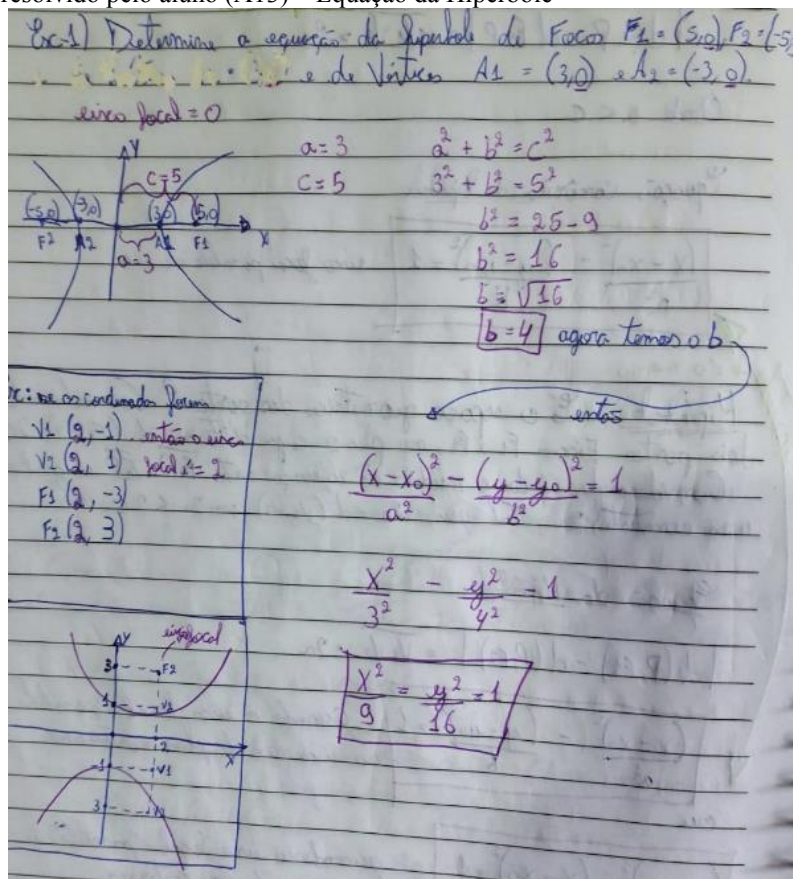 resolvido pelo aluno (A15) – Equação da Hipérbole
Ex-1) Determine a equação da hiperbole de Focos F1 = (5,0), F2 = (-5,
e de Vértices A1 = (3,0) e A2 = (-3,0).
eixo focal = 0
Y
C=5
(-5,0) (-3,0) (3,0) (5,0)
F2 A2 A1 F1 X
a=3
a = 3
C = 5
a² + b² = c²
3² + b² = 5²
b² = 25 - 9
b² = 16
b = √16
b = 4 agora temos o b
então
(x - x₀)² / a² - (y - y₀)² / b² = 1
x² / 3² - y² / 4² = 1
x² / 9 = y² / 16 = 1
: se as cordenadas forem
V1 (2, -1) então o eixo
V2 (2, 1) focal é = 2
F1 (2, -3)
F2 (2, 3)
Y eixo focal
3 F2
1 V2
2
X
-1 V1
3